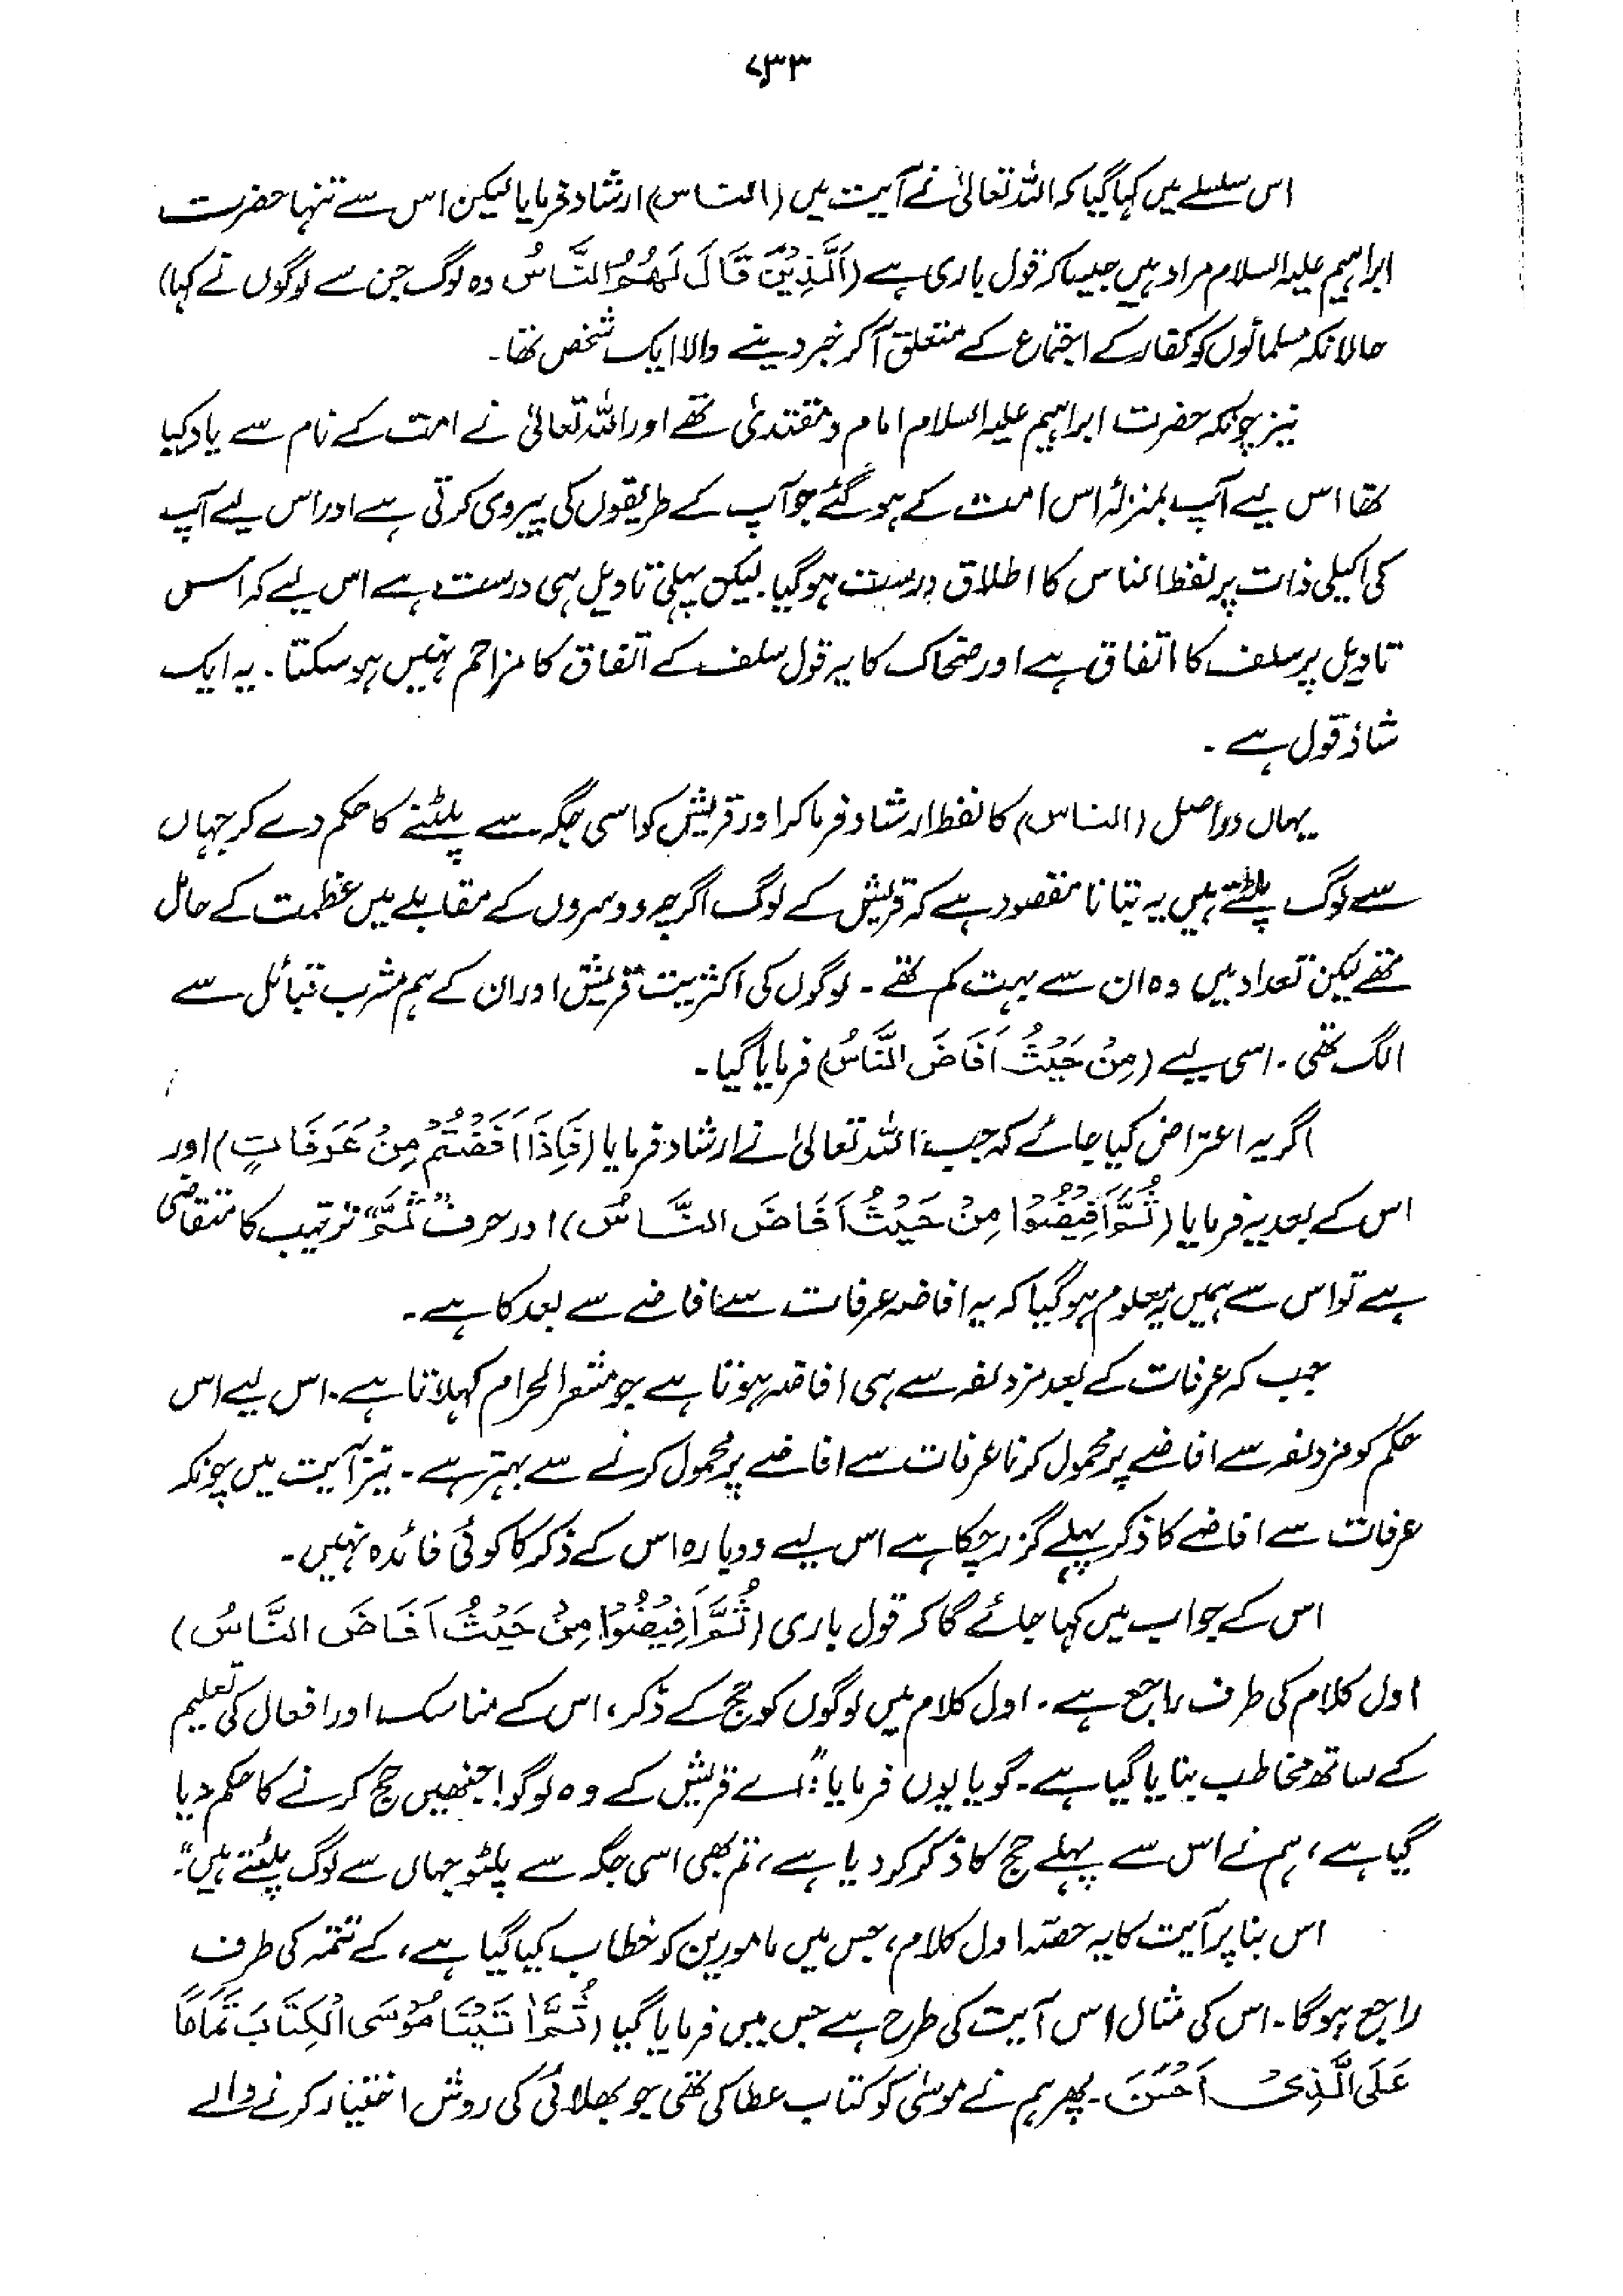 ۷۳۳
اس سلسلے میں کہا گیا کہ اللہ تعالیٰ نے آیت میں (الناس) ارشاد فرمایا لیکن اس سے تنہا حضرت
ابراہیم علیہ السلام مراد ہیں جیسا کہ قول باری ہے (اَلَّذِیْنَ قَالَ لَھُمُ النَّاسُ وہ لوگ جن سے لوگوں نے کہا)
حالانکہ مسلمانوں کو کفار کے اجتماع کے متعلق آکر خبر دینے والا ایک شخص تھا۔
نیز چونکہ حضرت ابراہیم علیہ السلام امام و مقتدیٰ تھے اور اللہ تعالیٰ نے امت کے نام سے یاد کیا
تھا اس لیے آپ بمنزلۂ اس امت کے ہو گئے جو آپ کے طریقوں کی پیروی کرتی ہے اور اس لیے آپ
کی اکیلی ذات پر لفظ الناس کا اطلاق درست ہو گیا۔ لیکن پہلی تاویل ہی درست ہے اس لیے کہ اس
تاویل پر سلف کا اتفاق ہے اور ضحاک کا یہ قول سلف کے اتفاق کا مزاحم نہیں ہو سکتا۔ یہ ایک
شاذ قول ہے۔
یہاں دراصل (الناس) کا لفظ ارشاد فرما کر اور قریش کو اسی جگہ سے پلٹنے کا حکم دے کر جہاں
سے لوگ پلٹتے ہیں یہ بتانا مقصود ہے کہ قریش کے لوگ اگرچہ دوسروں کے مقابلے میں عظمت کے حامل
تھے لیکن تعداد میں وہ ان سے بہت کم تھے۔ لوگوں کی اکثریت قریش اور ان کے ہم مشرب قبائل سے
الگ تھی۔ اسی لیے (مِنْ حَیْثُ اَفَاضَ النَّاسُ) فرمایا گیا۔
اگر یہ اعتراض کیا جائے کہ جب اللہ تعالیٰ نے ارشاد فرمایا (فَاِذَا اَفَضْتُمْ مِنْ عَرَفَاتٍ) اور
اس کے بعد یہ فرمایا (ثُمَّ اَفِیْضُوْا مِنْ حَیْثُ اَفَاضَ النَّاسُ) اور حرف "ثُمَّ" ترتیب کا متقاضی
ہے تو اس سے ہمیں یہ معلوم ہو گیا کہ یہ افاضہ عرفات سے افاضے سے بعد کا ہے۔
جب کہ عرفات کے بعد مزدلفہ سے ہی افاضہ ہوتا ہے جو مشعر الحرام کہلاتا ہے۔ اس لیے اس
حکم کو مزدلفہ سے افاضے پر محمول کرنا عرفات سے افاضے پر محمول کرنے سے بہتر ہے۔ نیز آیت میں چونکہ
عرفات سے افاضے کا ذکر پہلے گزر چکا ہے اس لیے دوبارہ اس کے ذکر کا کوئی فائدہ نہیں۔
اس کے جواب میں کہا جائے گا کہ قول باری (ثُمَّ اَفِیْضُوْا مِنْ حَیْثُ اَفَاضَ النَّاسُ)
اول کلام کی طرف راجع ہے۔ اول کلام میں لوگوں کو حج کے ذکر، اس کے مناسک اور افعال کی تعلیم
کے ساتھ مخاطب بنایا گیا ہے۔ گویا یوں فرمایا: "اے قریش کے وہ لوگو! جنھیں حج کرنے کا حکم دیا
گیا ہے، ہم نے اس سے پہلے حج کا ذکر کر دیا ہے، تم بھی اسی جگہ سے پلٹو جہاں سے لوگ پلٹتے ہیں"۔
اس بنا پر آیت کا یہ حصّہ اول کلام، جس میں مامورین کو خطاب کیا گیا ہے، کے تتمہ کی طرف
راجع ہوگا۔ اس کی مثال اس آیت کی طرح ہے جس میں فرمایا گیا (ثُمَّ اٰتَیْنَا مُوْسَی الْکِتَابَ تَمَامًا
عَلَی الَّذِیْ اَحْسَنَ۔ پھر ہم نے موسیٰ کو کتاب عطا کی تھی جو بھلائی کی روش اختیار کرنے والے